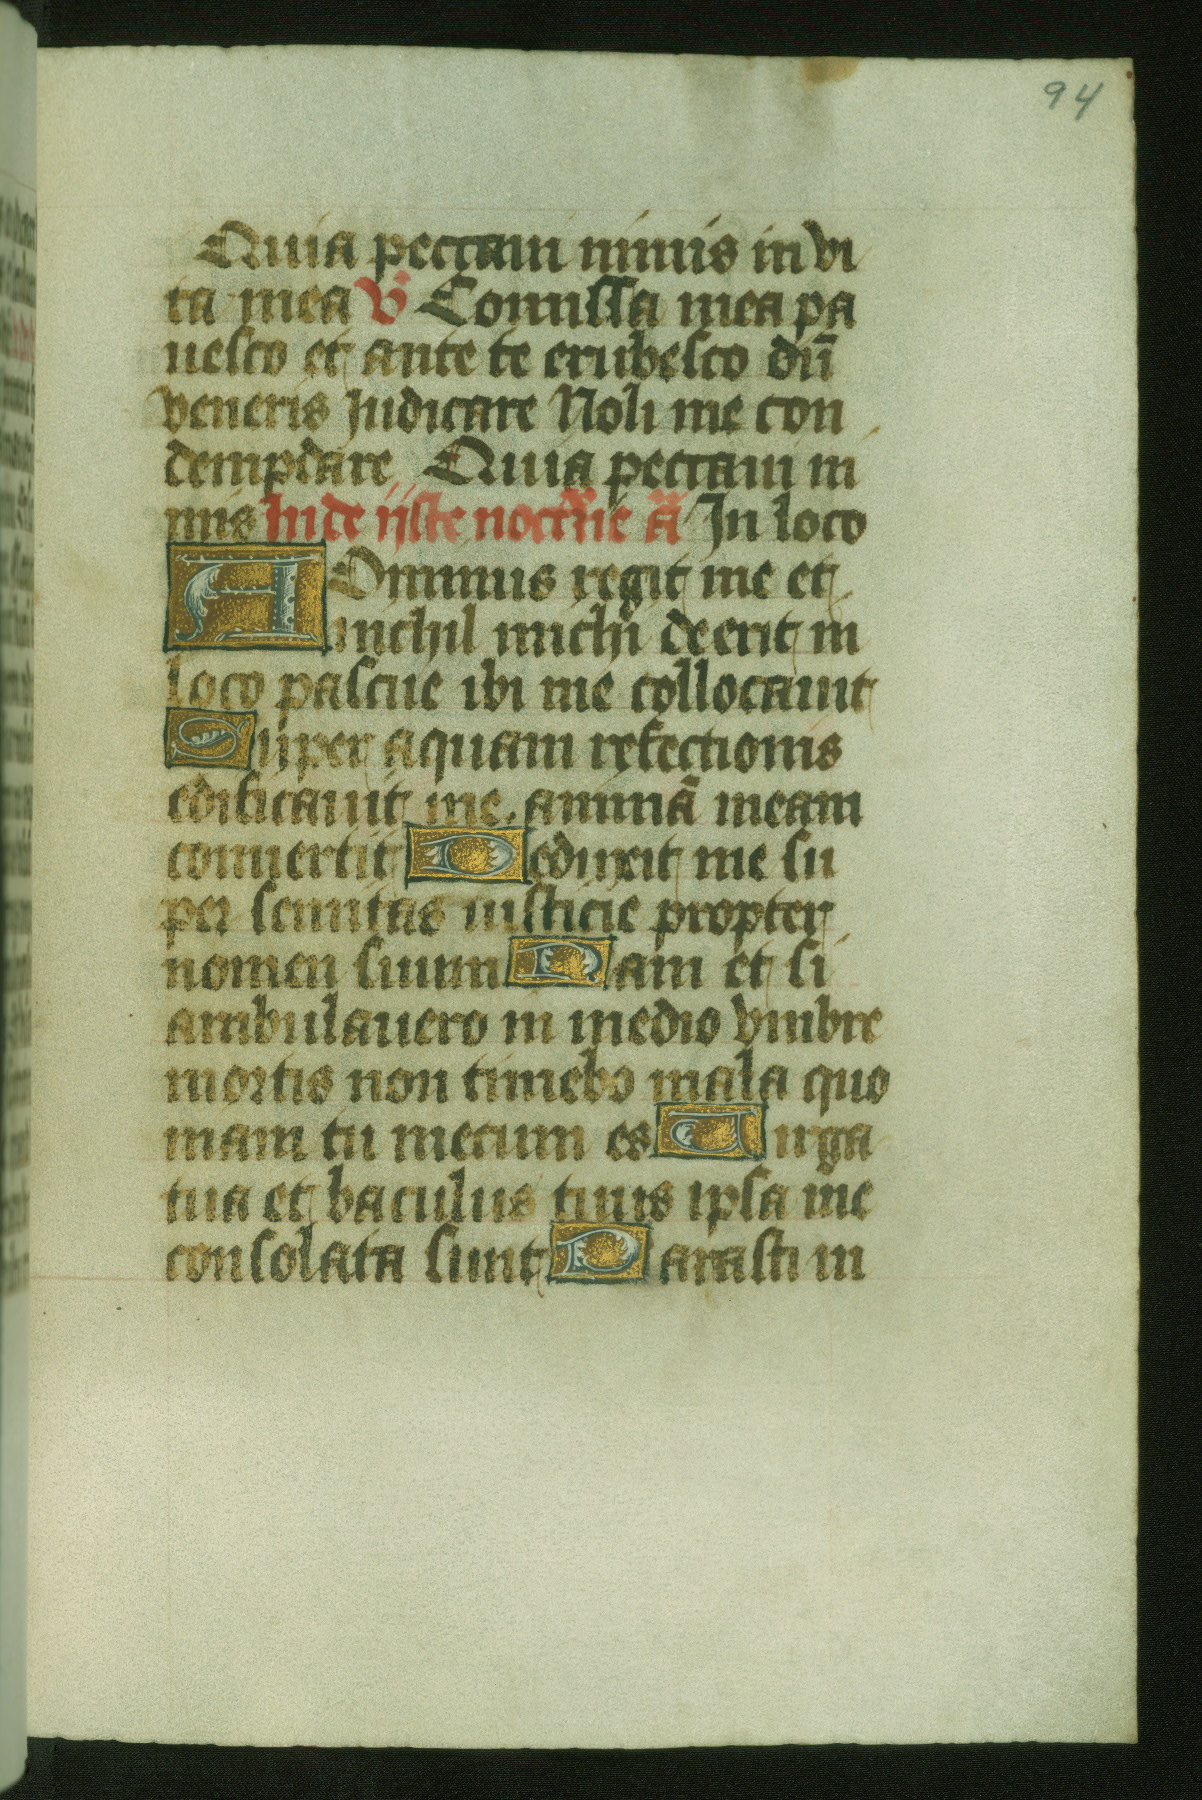 94
Quia peccaui nimis in vi
ta mea V̄ Comissa mea pa
uesco et ante te erubesco dū
veneris Judicare Noli me con
dempdare Quia peccaui ni
mis In loco
A Dominus regit me et
nichil michi deerit in
loco pascue ibi me collocauit
Super aquam refectionis
edificauit me animā meam
conuertit Deduxit me su
per semitas iusticie propter
nomen suum Nam et si
ambulauero in medio vmbre
mortis non timebo mala quo
niam tu mecum es Uirga
tua et baculus tuus ipsa me
consolata sunt Parasti in